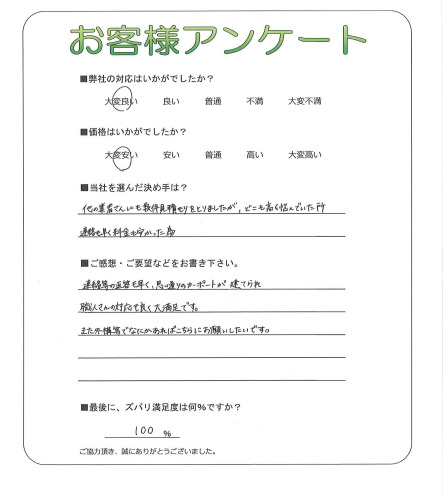 お客様アンケート
■弊社の対応はいかがでしたか?
大変良い 良い 普通 不満 大変不満
■価格はいかがでしたか?
大変安い 安い 普通 高い 大変高い
■当社を選んだ決め手は?
他の業者さんにも数件見積もりをとりましたが、どこも高く悩んでいた所
連絡も早く料金も安かった為
■ご感想・ご要望などをお書き下さい。
連絡等の返答も早く、思い通りのカーポートが建てられ
職人さんの対応も良く大満足です。
また外構等でなにかあればこちらにお願いしたいです。
■最後に、ズバリ満足度は何%ですか?
100 %
ご協力頂き、誠にありがとうございました。